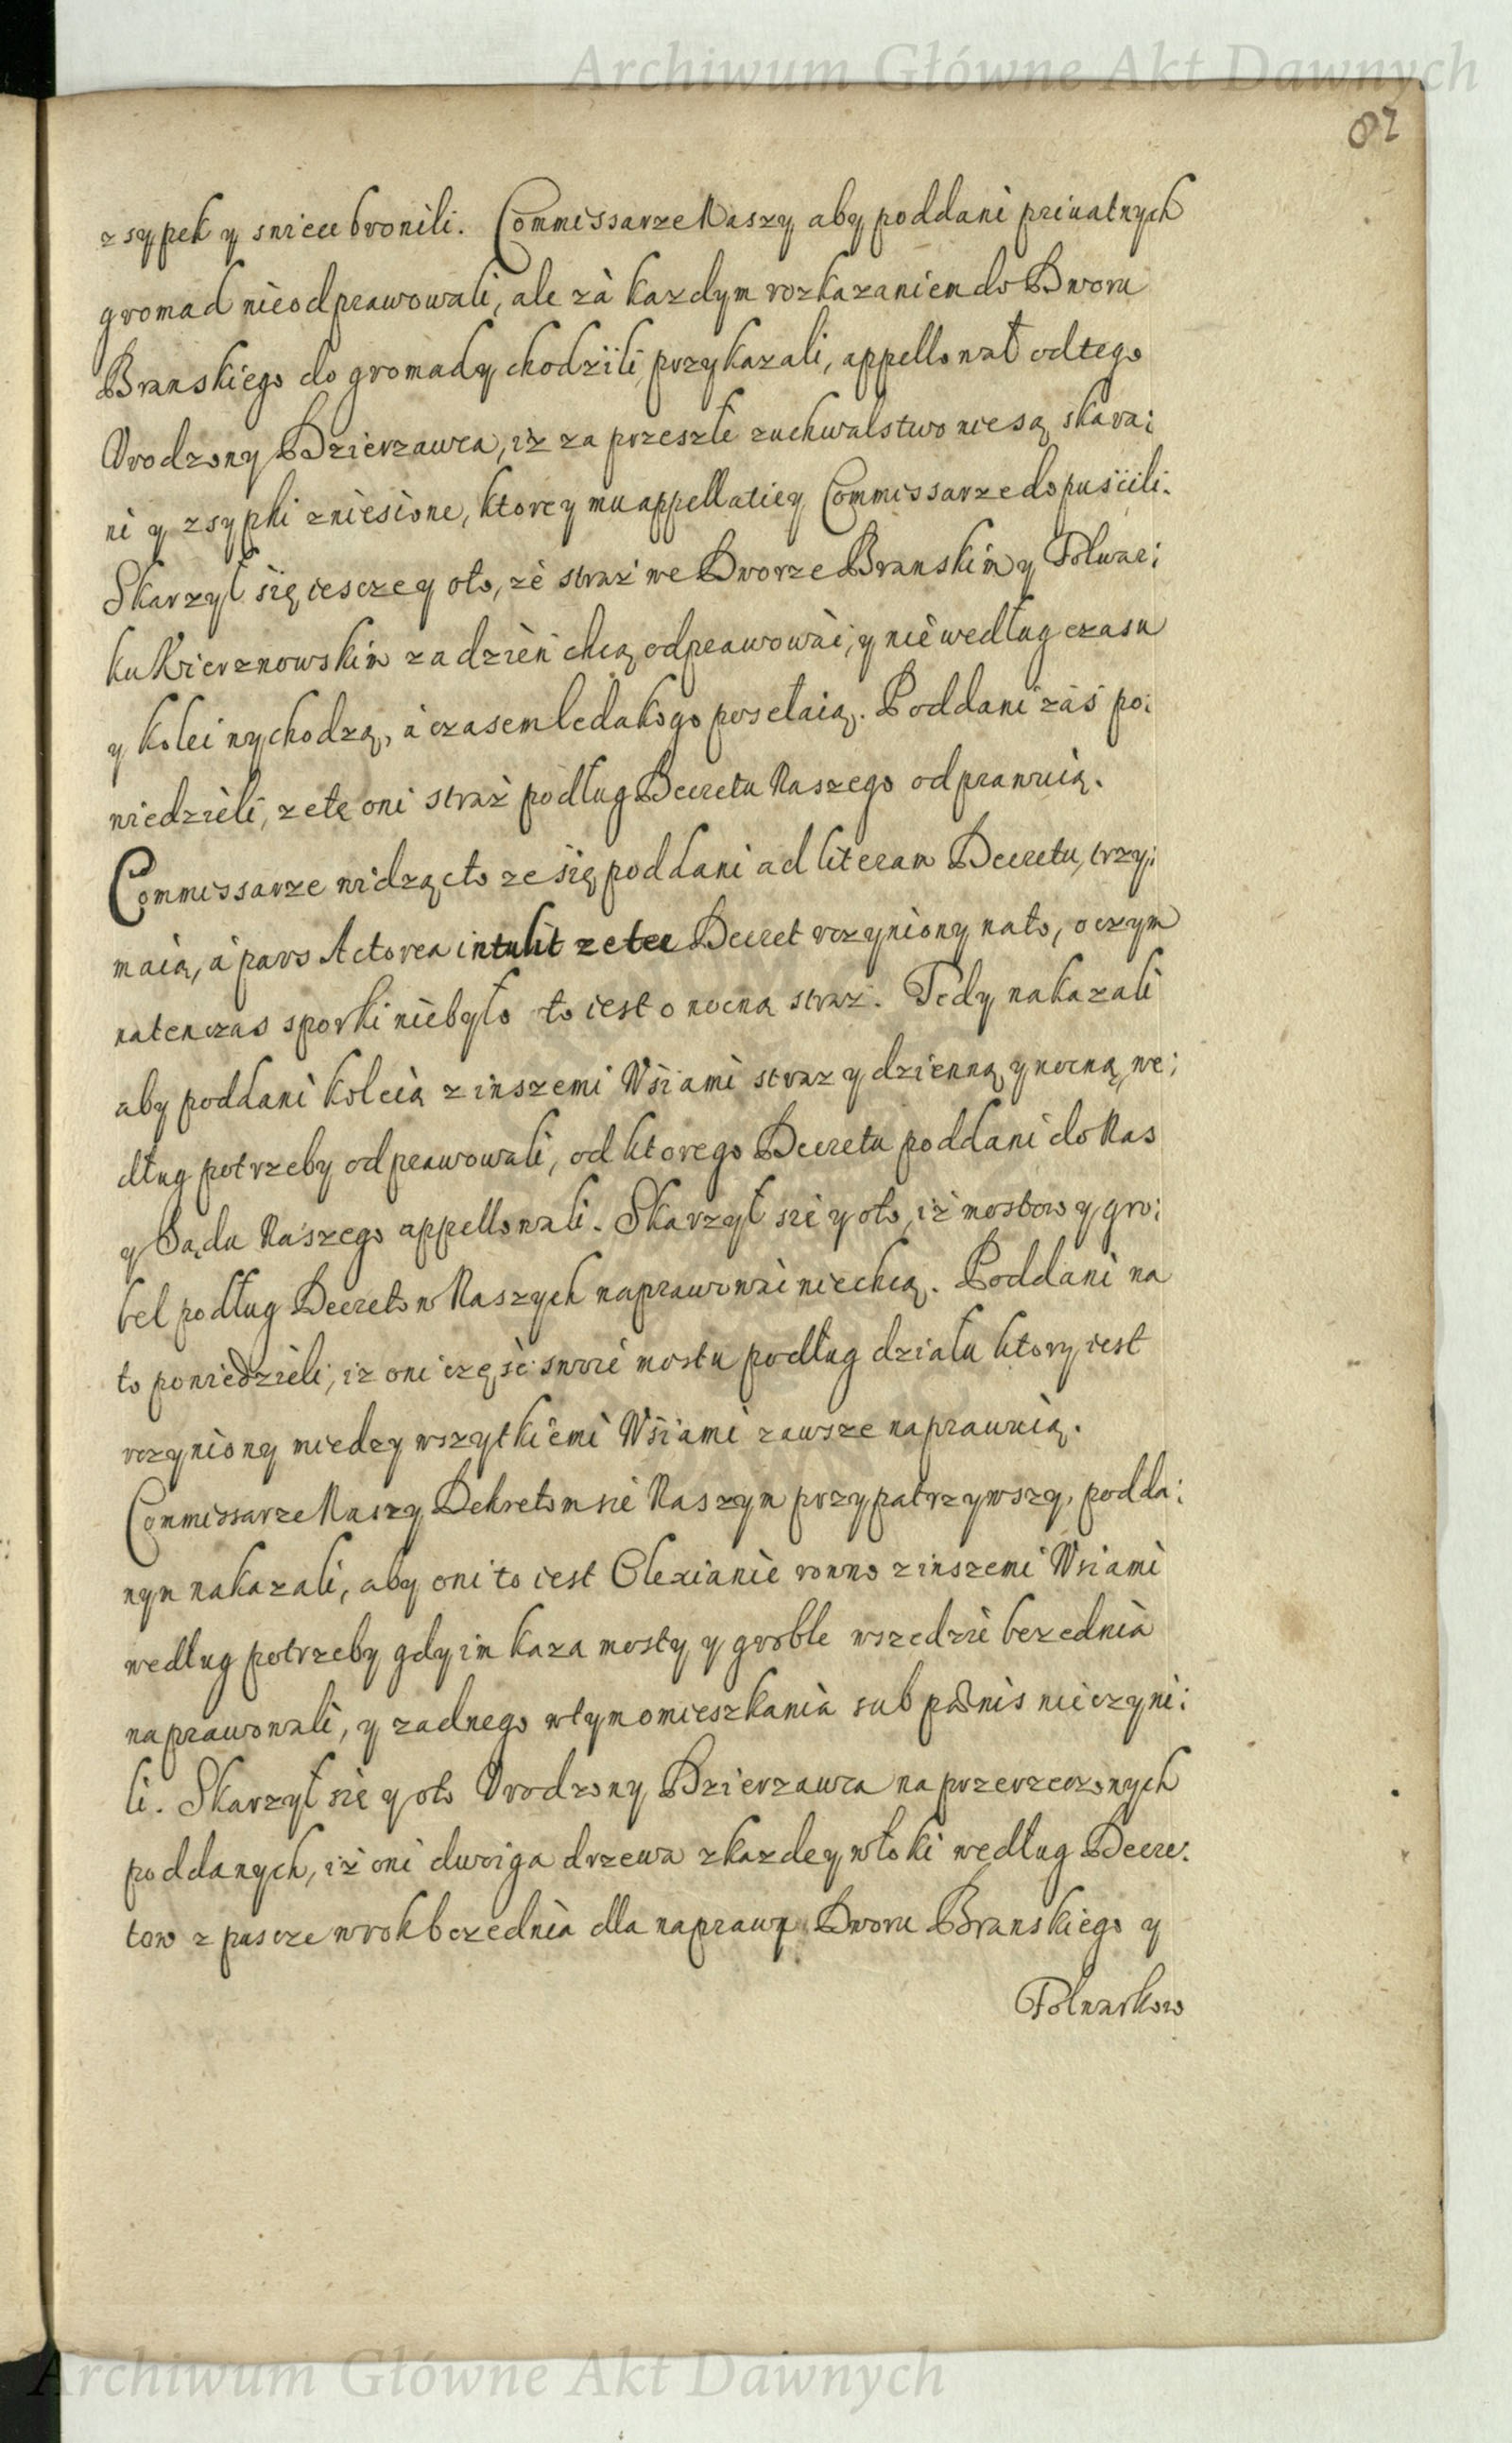 Archiwum Główne Akt Dawnych
82
zsypek y sniew bronili. Commissarze Naszy aby poddani priuatnych
gromad nieodprawowali, ale zà kazdym rozkazaniem do Dworu
Branskiego do gromady chodzili przykazali, appellował odtego
Vrodzony Dzierzawca, iż za przeszłe zuchwalstwo nie są skara:
ni y zsypki zniesione, ktorey mu appellatiey Commissarze dopuscili.
Skarzył się iescze y oto, zè straż we Dworze Branskim y Folwar:
ku Kierznowskim za dzień chcą odprawować, y nie według czasu
y kolei wychodzą, à czasem ledakogo posełaią. Poddani zaś po:
wiedzieli, ze tę oni straż podług Decretu Naszego odprawuią.
Commissarze widząc to ze się poddani ad literam Decretu, trzy:
maią, à pars Actorea intulit ze ten Decret vczyniony na to, o czym
natenczas sporki niebyło to iest o nocną straż. Tedy nakazali
aby poddani koleią z inszemi Wsiami straz y dzienną y nocną, we:
dług potrzeby odprawowali, od ktorego Decretu poddani do Nas
y Sądu Naszego appellowali. Skarzył sie y oto, iż mostow y gro:
bel podług Decretow Naszych naprawować niechcą. Poddani na
to powiedzieli, iz oni część swoię mostu podług działu ktory iest
vczyniony miedzy wszytkiemi Wsiami zawsze naprawuią.
Commissarze Naszy Dekretom sie Naszym przypatrzywszy, podda:
nym nakazali, aby oni to iest Olexianie rowno z inszemi Wsiami
według potrzeby gdy im kaza mosty y groble wszedzie bezednia
naprawowali, y zadnego wtym omieszkania sub pœnis nieczyni:
li. Skarzył się y oto Vrodzony Dzierzawca na przerzeczonych
poddanych, iż oni dwoiga drzewa z kazdey włoki według Decre:
tow z puscze w rok bezednia dla naprawy Dworu Branskiego y
Folwarkow
Archiwum Główne Akt Dawnych